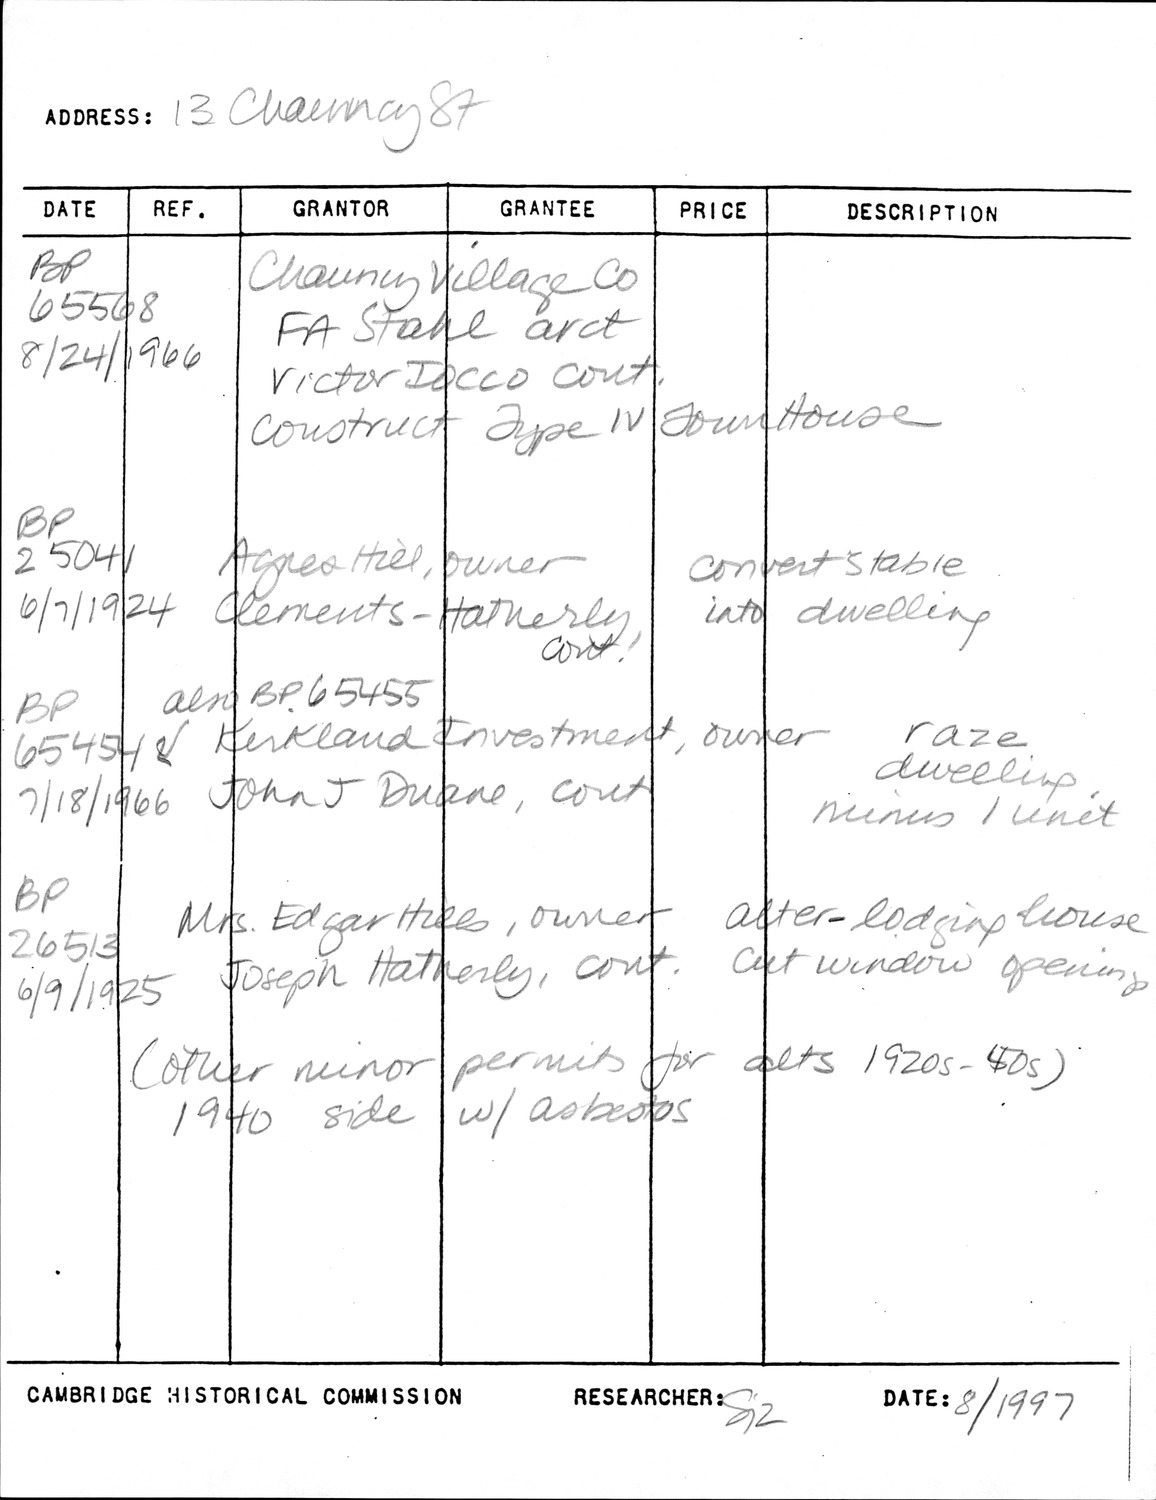 ADDRESS: 13 Chauncy St
DATE REF. GRANTOR GRANTEE PRICE DESCRIPTION
BP
65568 Chauncy Village Co
8/24/1966 FA Stahl arct
Victor Iocco cont.
Construct Type IV TownHouse
BP
25041 Agnes Hill, owner convert stable
6/7/1924 Clements-Hatherly, into dwelling
cont.
BP also BP. 65455
65454 & Kirkland Investment, owner raze
dwelling,
7/18/1966 John J Duane, cont minus 1 unit
BP
26513 Mrs. Edgar Hills, owner alter-lodging house
6/9/1925 Joseph Hatherly, cont. Cut window opening
(other minor permits for alts 1920s-40s)
1940 side w/ asbestos
CAMBRIDGE HISTORICAL COMMISSION RESEARCHER: DATE: 8/1997